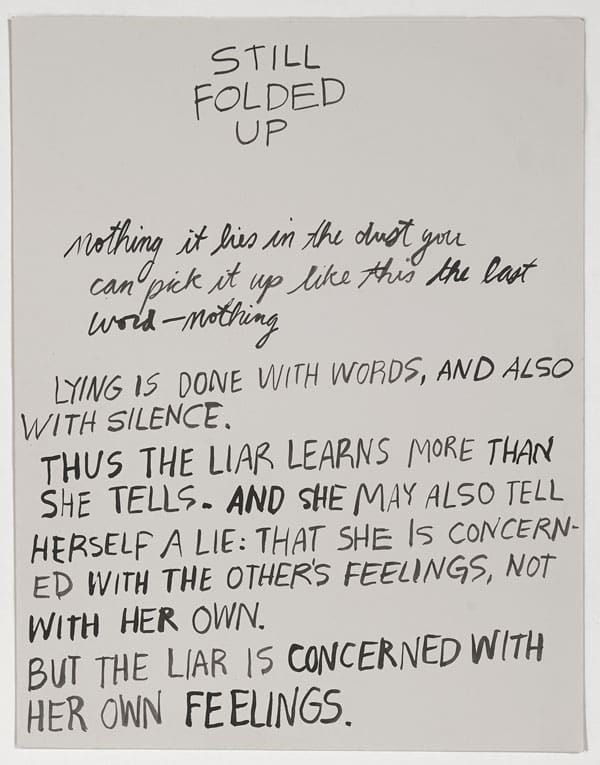 STILL
FOLDED
UP
nothing it lies in the dust you
can pick it up like this the last
word—nothing
LYING IS DONE WITH WORDS, AND ALSO
WITH SILENCE.
THUS THE LIAR LEARNS MORE THAN
SHE TELLS. AND SHE MAY ALSO TELL
HERSELF A LIE: THAT SHE IS CONCERN-
ED WITH THE OTHER'S FEELINGS, NOT
WITH HER OWN.
BUT THE LIAR IS CONCERNED WITH
HER OWN FEELINGS.